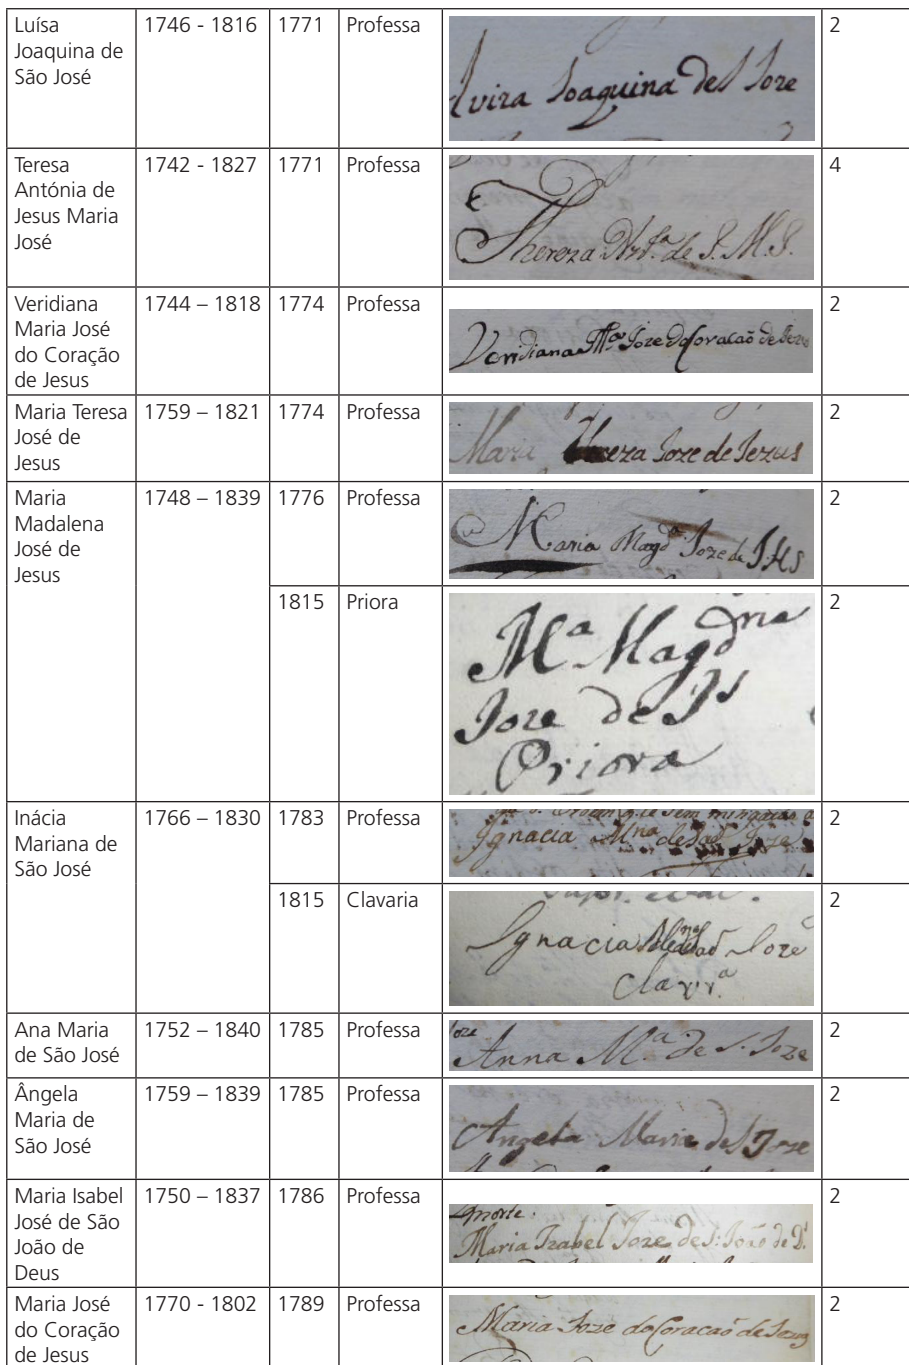 Luísa Joaquina de São José
1746 - 1816
1771
Professa
Luiza Joaquina de S Joze
2
Teresa Antónia de Jesus Maria José
1742 - 1827
1771
Professa
Thereza Ant.ª de J. M. J.
4
Veridiana Maria José do Coração de Jesus
1744 – 1818
1774
Professa
Veridiana Mª Joze do Coracaõ de Jezus
2
Maria Teresa José de Jesus
1759 – 1821
1774
Professa
Maria Thereza Joze de Jezus
2
Maria Madalena José de Jesus
1748 – 1839
1776
Professa
Maria Magdª Joze de J.H.S
2
1815
Priora
Mª Magdna
Joze de Js
Priora
2
Inácia Mariana de São José
1766 – 1830
1783
Professa
Ignacia Mna de Joze
2
1815
Clavaria
Ignacia Joze
Clavrª
2
Ana Maria de São José
1752 – 1840
1785
Professa
Joze
Anna Mª de S. Joze
2
Ângela Maria de São José
1759 – 1839
1785
Professa
Angela Maria de S Joze
2
Maria Isabel José de São João de Deus
1750 – 1837
1786
Professa
morte.
Maria Izabel Joze de S. Joaõ de D.s
2
Maria José do Coração de Jesus
1770 - 1802
1789
Professa
Maria Joze do Coracaõ de Jezus
2